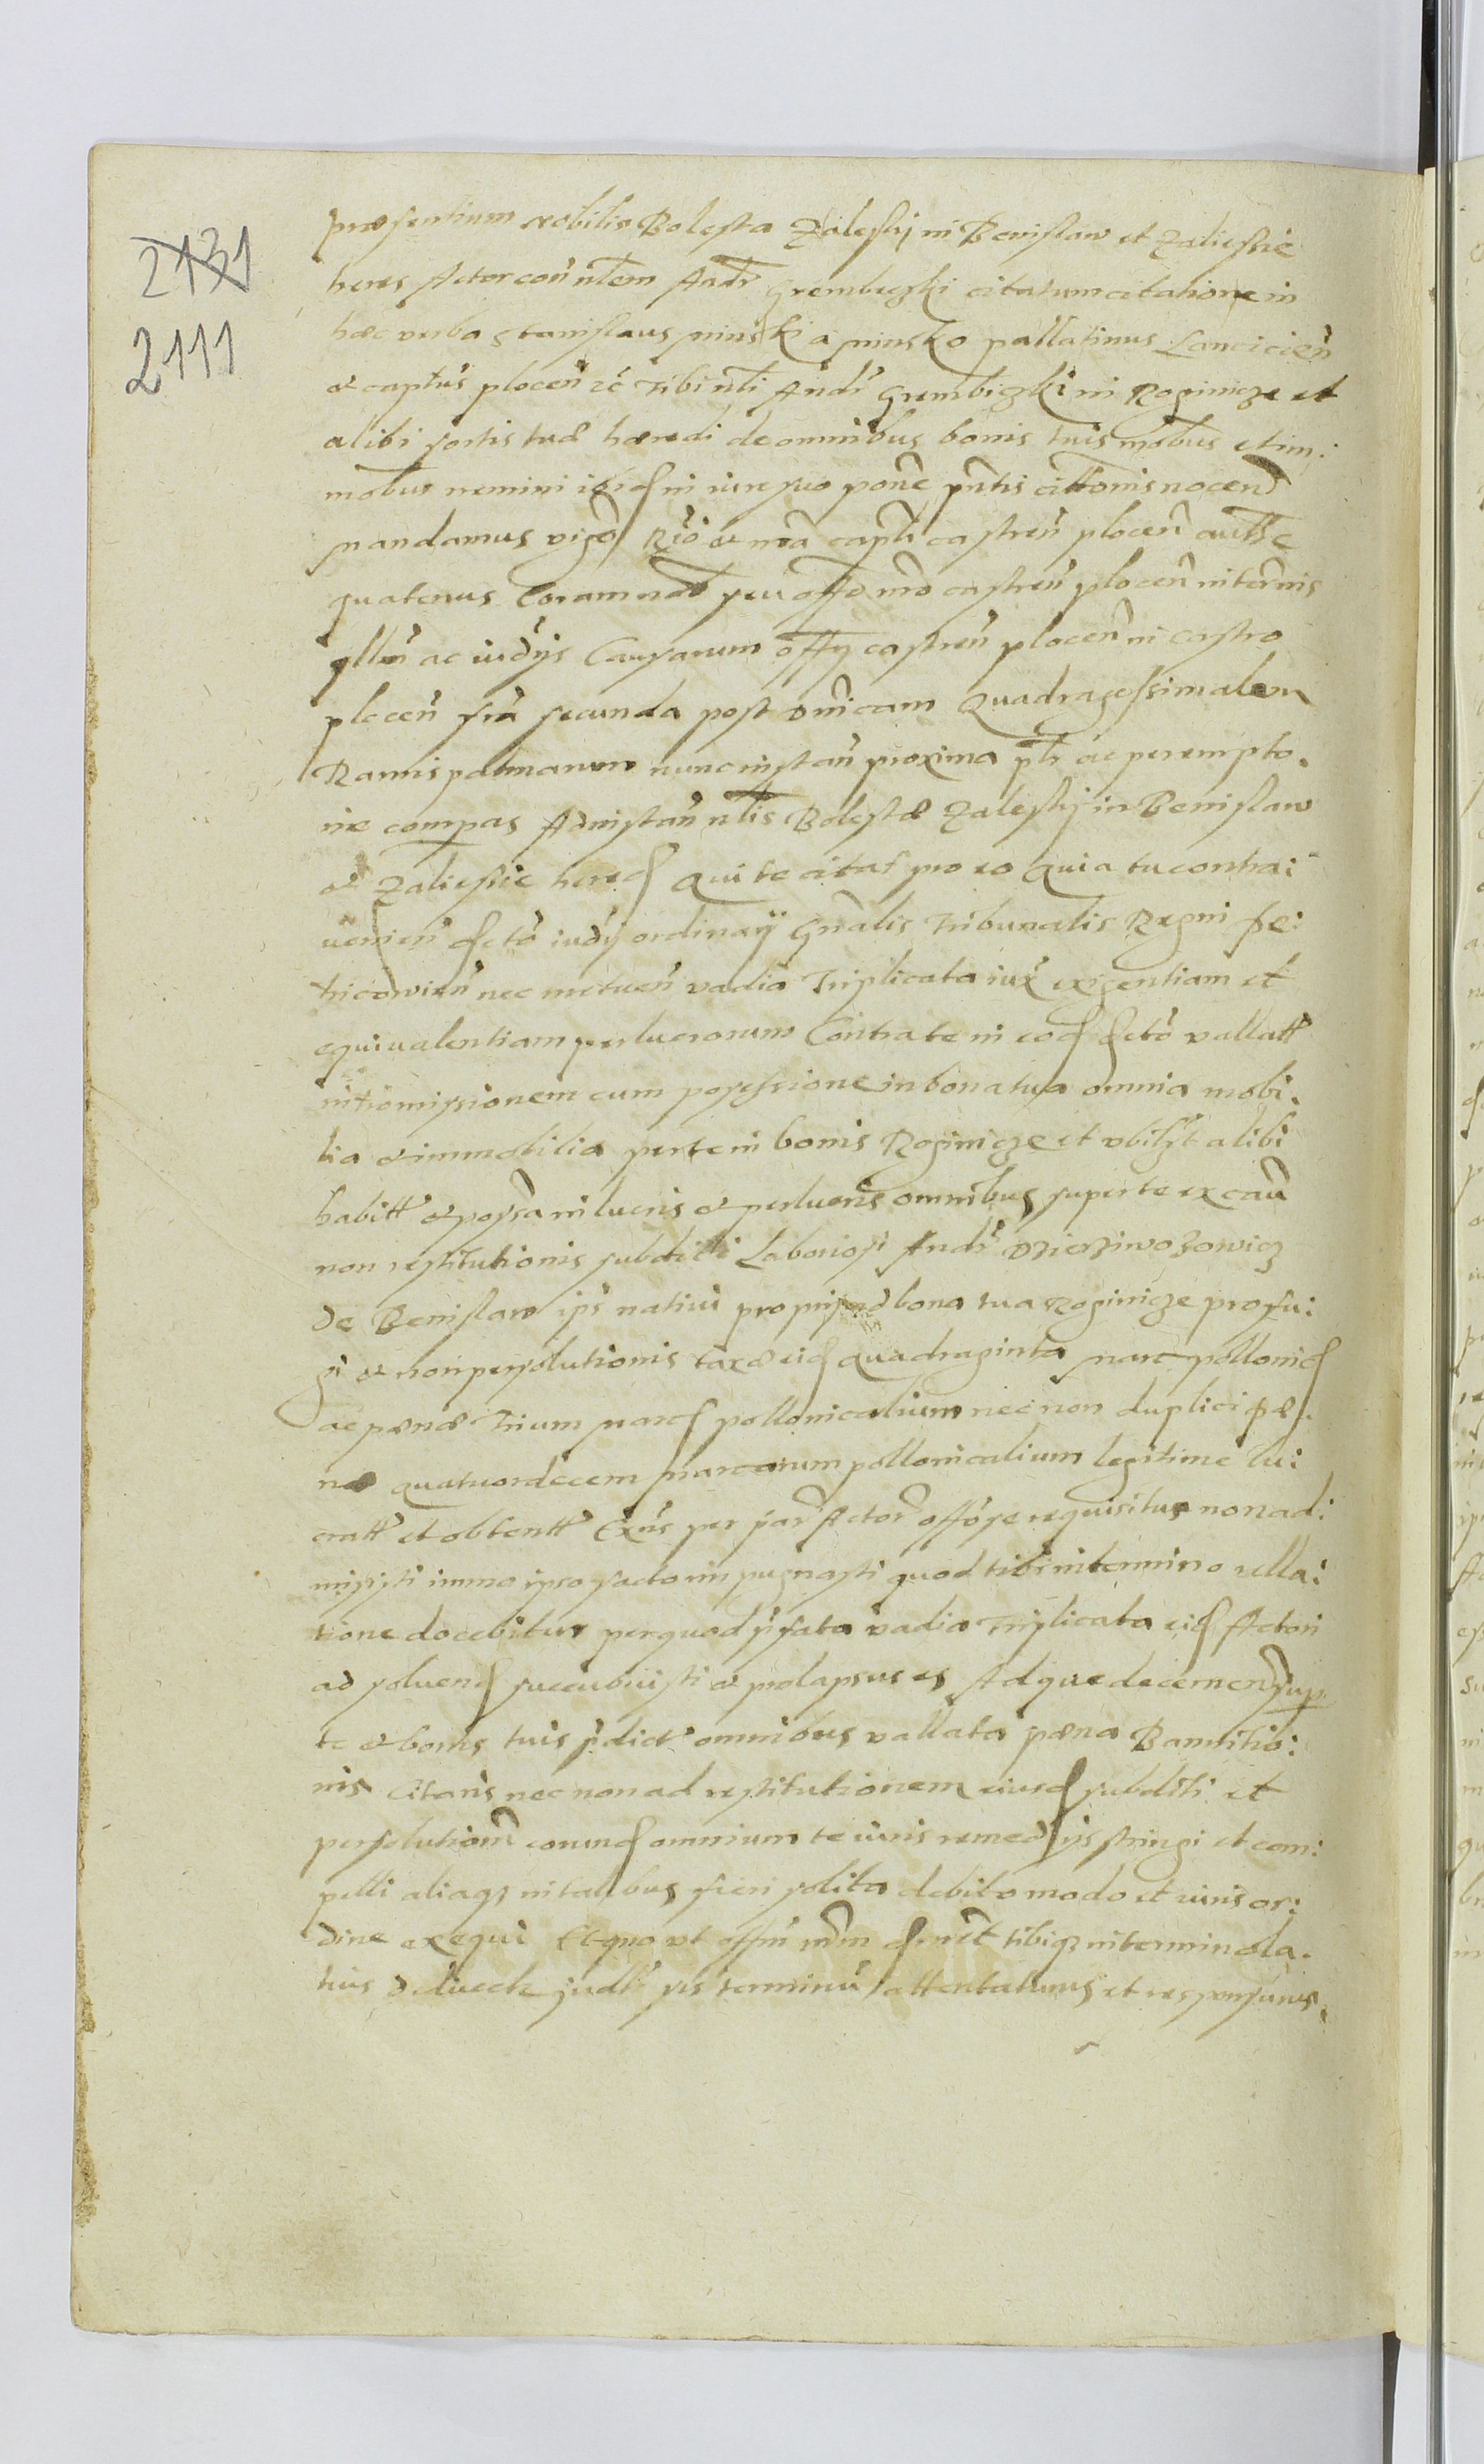 2131
2111
præsentium nobilis Bolesta Zaleskj in Benislaw et Zaliessie
heres Actor coñ nlem Andr̃ Grembiczki citatum citatione in
hæc verba Stanislaus Minski a Minsko pallatinus Lancicieñ
et captũs ploceñ ꝛc̃ Tibi nli Andr̃ Grembiczki in Roginicze et
alibi sortis tuæ hæredi de omnibus bonis tuis mobus et im:
mobus nemini ibid in iure suo pone pñtis cittonis nocend
mandamus vigo Rio et nrã captli castreñ ploceñ autte
quatenus Coram nob seu offo nro castreñ ploceñ in termis
qllñ ac iudijs Causarum offy castreñ ploceñ in castro
ploceñ fria secunda post dnicam Quadragessimalem
Ramispalmarum nunc instañ proxima plr ac perempto.
rie compas Ad instañ nlis Bolestæ Zaleskj in Benislaw
et Zaliessie hered Qui te citat pro eo Quia tu contra:
venieñ dcto iudij ordinarij Gnalis Tribunalis Regni Pe:
tricovieñ nec metueñ vadia Triplicata iux exigentiam et
equivalentiam perlucrorum Contra te in eod dcto vallatt
intromissionem cum possessione in bona tua omnia mobi.
lia et immobilia per te in bonis Roginicze et ubilzt alibi
habitt et possa in lucris et perlucris omnibus super te ex cau
non restitutionis subditi Laboriosi Andr̃ Dziedziwozowicz
de Benislaw ips nativi proprij ad bona tua Roginicze profu:
gi et non persolutionis taxæ eid quadraginta marc pollonicd
ac pænæ Trium marcd pollonicalium nec non duplici pæ:
næ quatuordecem marcarum pollonicalium legitime lu:
cratt et obtentt Exns per par Actor offose requisitus non ad:
misisti immo ipso facto impugnasti quod tibi in termino rella:
tione docebitur per quod pfata vadia Triplicata eid Actori
ad solvend succubuisti et prolapsus es Ad quæ decernend sup
te et bonis tuis pdict omnibus vallata pæna Bannitio:
nis citaris nec non ad restitutionem eiusd subditi et
persolutionẽ eorund omnium te iuris remedijs stringi et com:
pelli aliaqz in talibus fieri solita debito modo et iuris or:
dine exequi Et quo ut offm nrm dcnet tibiqz in termino la.
tius deducetr judlr sis terminũ attentaturus et responsurus.